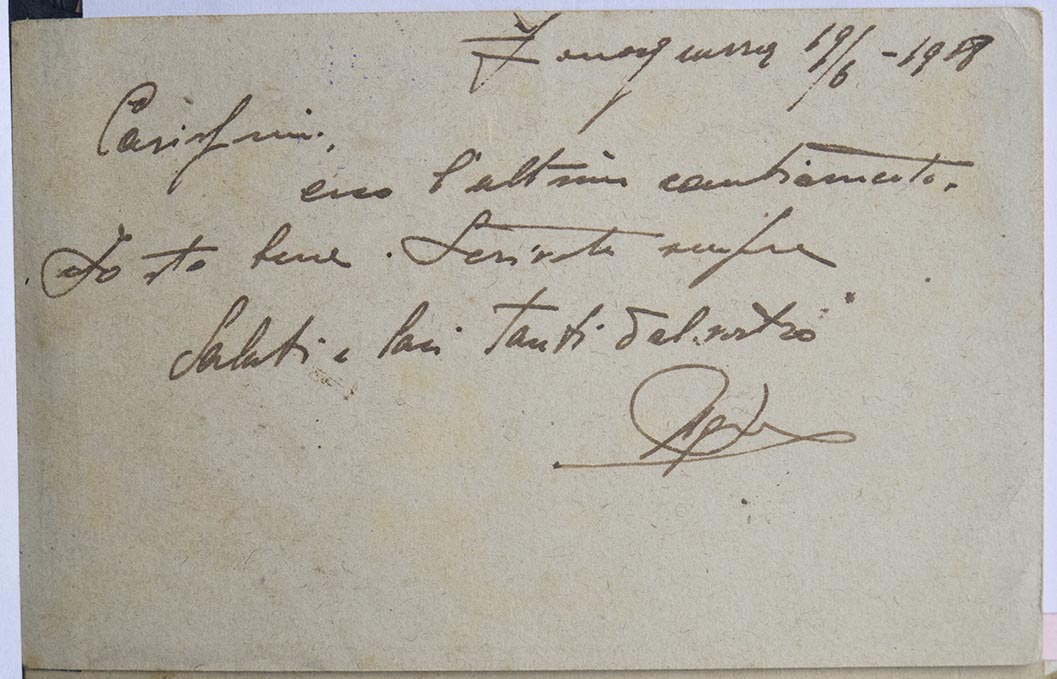 Zona guerra 19/6 - 1918
Carissimi,
ecco l'ultimo cambiamento.
Io sto bene. Scrivete sempre
Saluti e baci tanti dal vostro